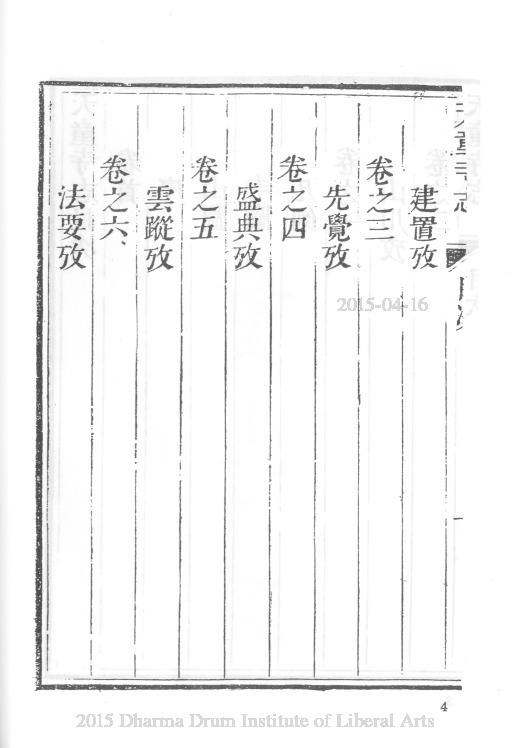 建置攷
卷之三
先覺攷
卷之四
盛典攷
卷之五
雲蹤攷
卷之六
法要攷
2015-04-16
4
2015 Dharma Drum Institute of Liberal Arts